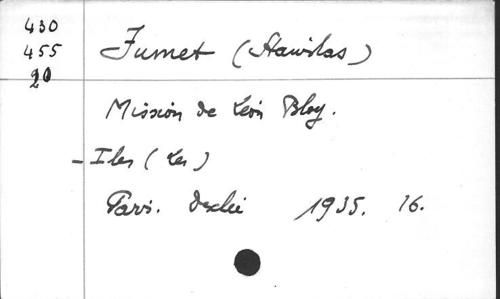 430
455
20
Fumet (Stanislas)
Mission de Léon Bloy.
- Iles (Les)
Paris. Desclée 1935. 16.